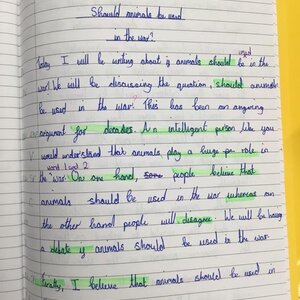 Should animals be used
in the war?
Today I will be writing about if animals should be used in the
war! We will be discussing the question, should animals
be used in the war. This has been an ongoing
argument for decades. An intelligent person like you
would understand that animals play a huge role in
word 1 and 2
the war. On one hand, some people believe that
animals should be used in the war whereas on
the other hand people will disagree. We will be having
a debate if animals should be used in the war.
Firstly, I believe that animals should be used in